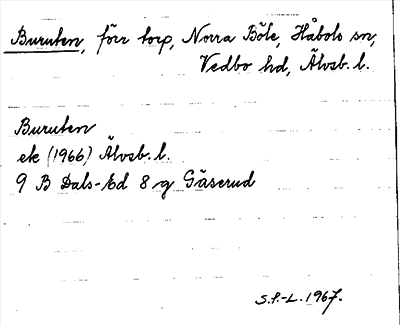 Buruten, förr torp, Norra Böle, Håbols sn,
Vedbo hd, Älvsb. l.
Buruten
ek (1966) Älvsb. l.
9 B Dals-Ed 8 g Gäserud
S.F.-L. 1967.